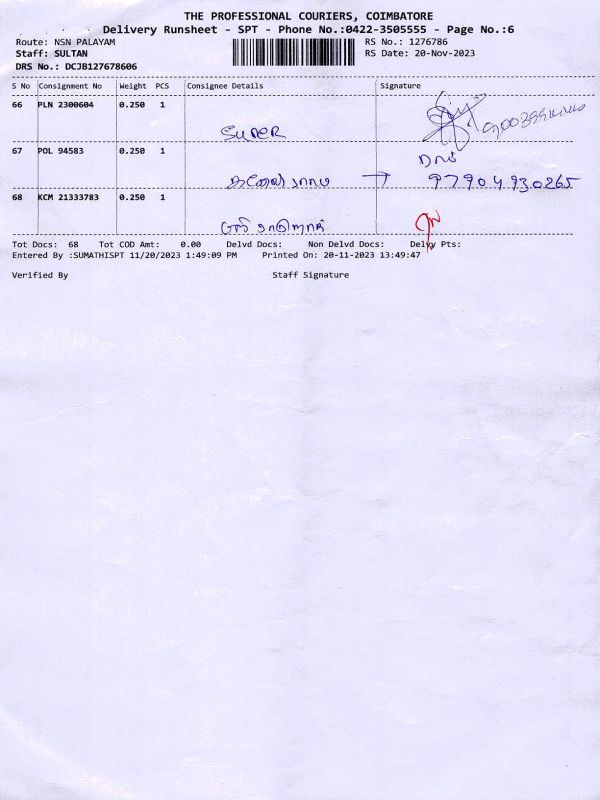 THE PROFESSIONAL COURIERS, COIMBATORE
Delivery Runsheet - SPT - Phone No.:0422-3505555 - Page No.:6
Route: NSN PALAYAM RS No.: 1276786
Staff: SULTAN RS Date: 20-Nov-2023
DRS No.: DCJB127678606
S No Consignment No Weight PCS Consignee Details Signature
66 PLN 2300604 0.250 1
SUPER
67 POL 94583 0.250 1
→ 97904930265
68 KCM 21333783 0.250 1
Tot Docs: 68 Tot COD Amt: 0.00 Delvd Docs: Non Delvd Docs: Delvy Pts:
Entered By :SUMATHISPT 11/20/2023 1:49:09 PM Printed On: 20-11-2023 13:49:47
Verified By Staff Signature